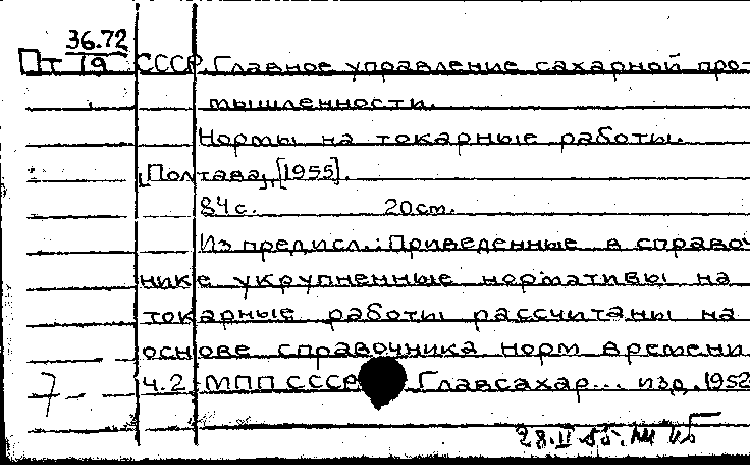 36.72
Пт 19 СССР. Главное управление сахарной про-
мышленности.
Нормы на токарные работы.
[Полтава], [1955].
84 с. 20 cm.
Из предисл.: Приведенные в справоч
нике укрупненные нормативы на
токарные работы рассчитаны на
основе справочника норм времени
7 ч. 2 МПП СССР Главсахар... изд. 1952
28.II 55.